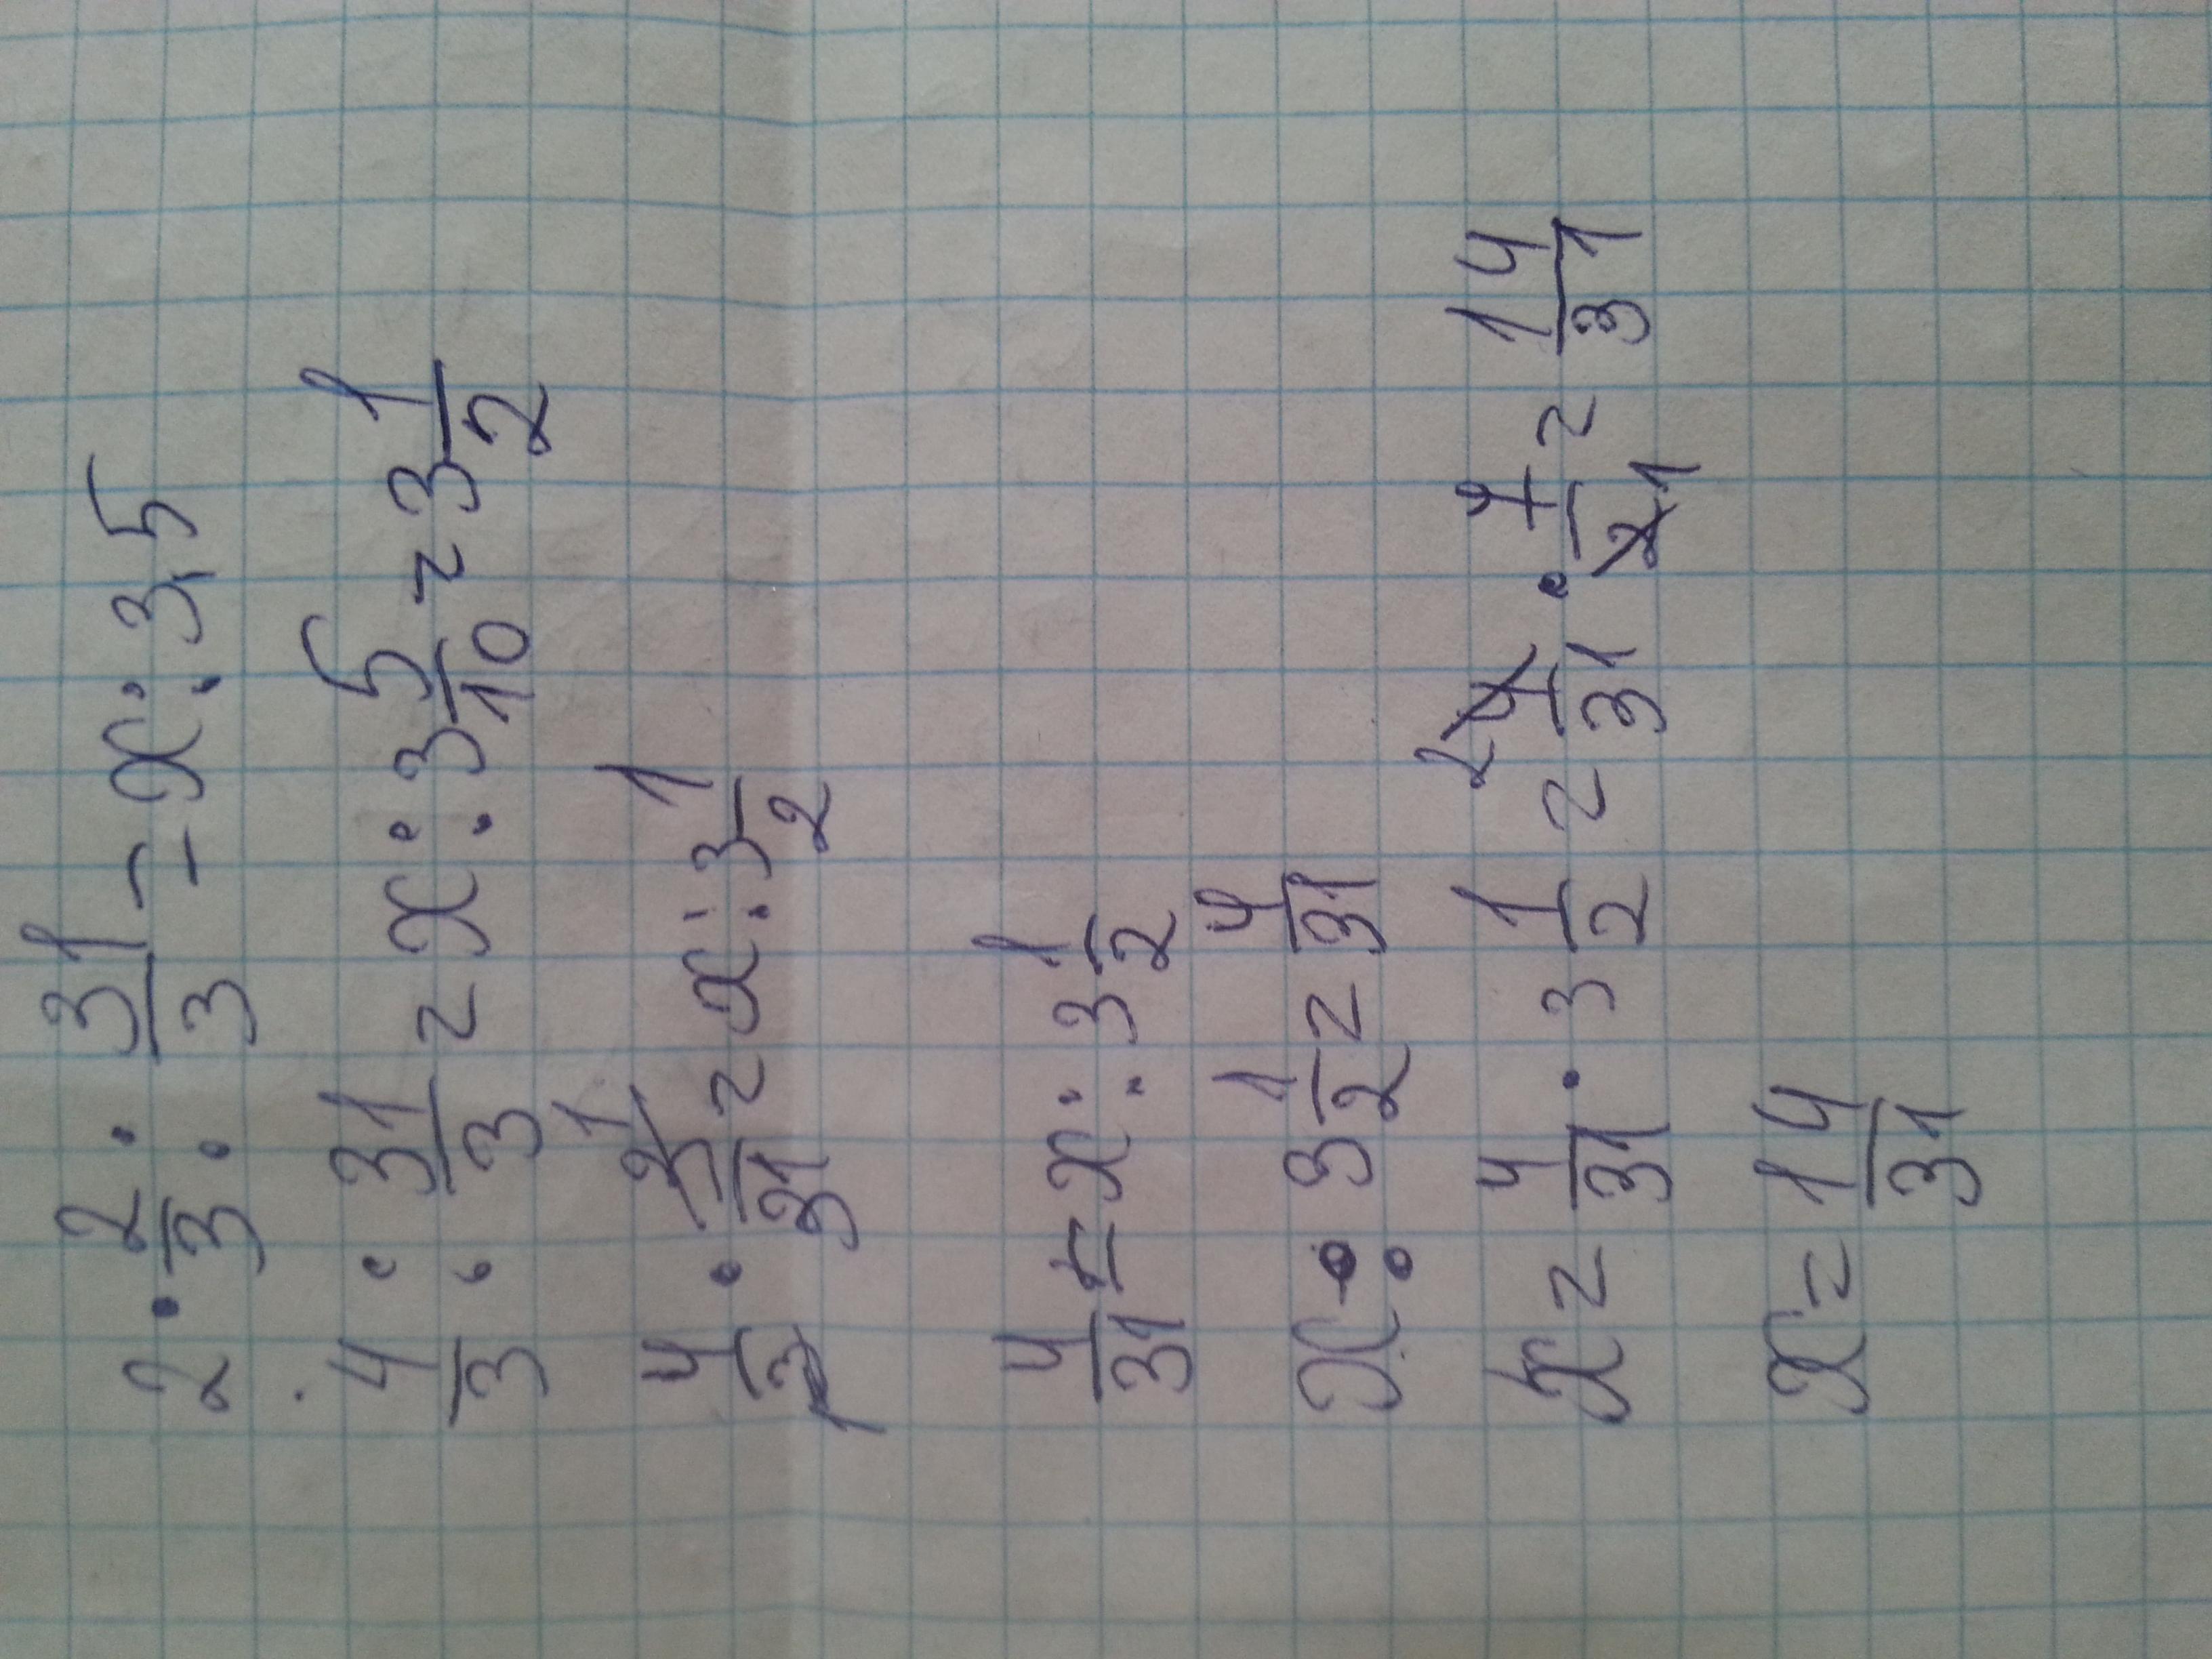 2 · 2/3 : 31/3 = x : 3,5
4/3 : 31/3 = x : 3 5/10 = 3 1/2
4/3 1 · 3/31 1 = x : 3 1/2
4/31 = x : 3 1/2
x : 3 1/2 = 4/31
x = 4/31 · 3 1/2 = 2 4/31 · 7/2 1 = 14/31
x = 14/31